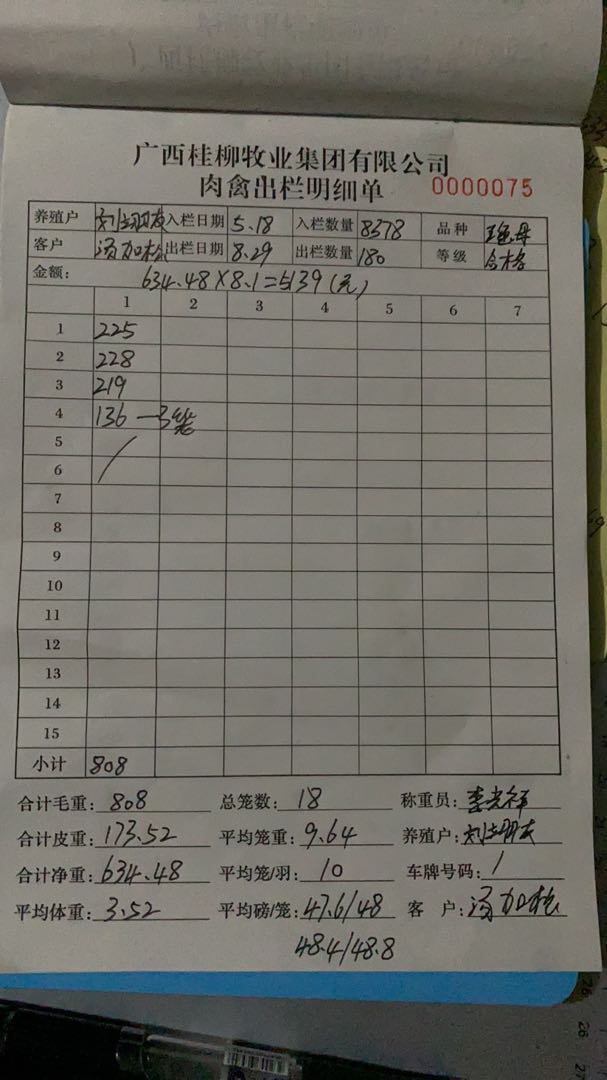 广西桂柳牧业集团有限公司
肉禽出栏明细单 0000075
养殖户 入栏日期 5.18 入栏数量 8378 品种
客户 汤加松 出栏日期 8.29 出栏数量 180 等级 合格
金额: 634.48×8.1=5139(元)
1 2 3 4 5 6 7
1 225
2 228
3 219
4 136 —3笼
5
6
7
8
9
10
11
12
13
14
15
小计 808
合计毛重: 808 总笼数: 18 称重员: 李光祥
合计皮重: 173.52 平均笼重: 9.64 养殖户:
合计净重: 634.48 平均笼/羽: 10 车牌号码: /
平均体重: 3.52 平均磅/笼: 47.6/48 客 户: 汤加松
48.4/48.8